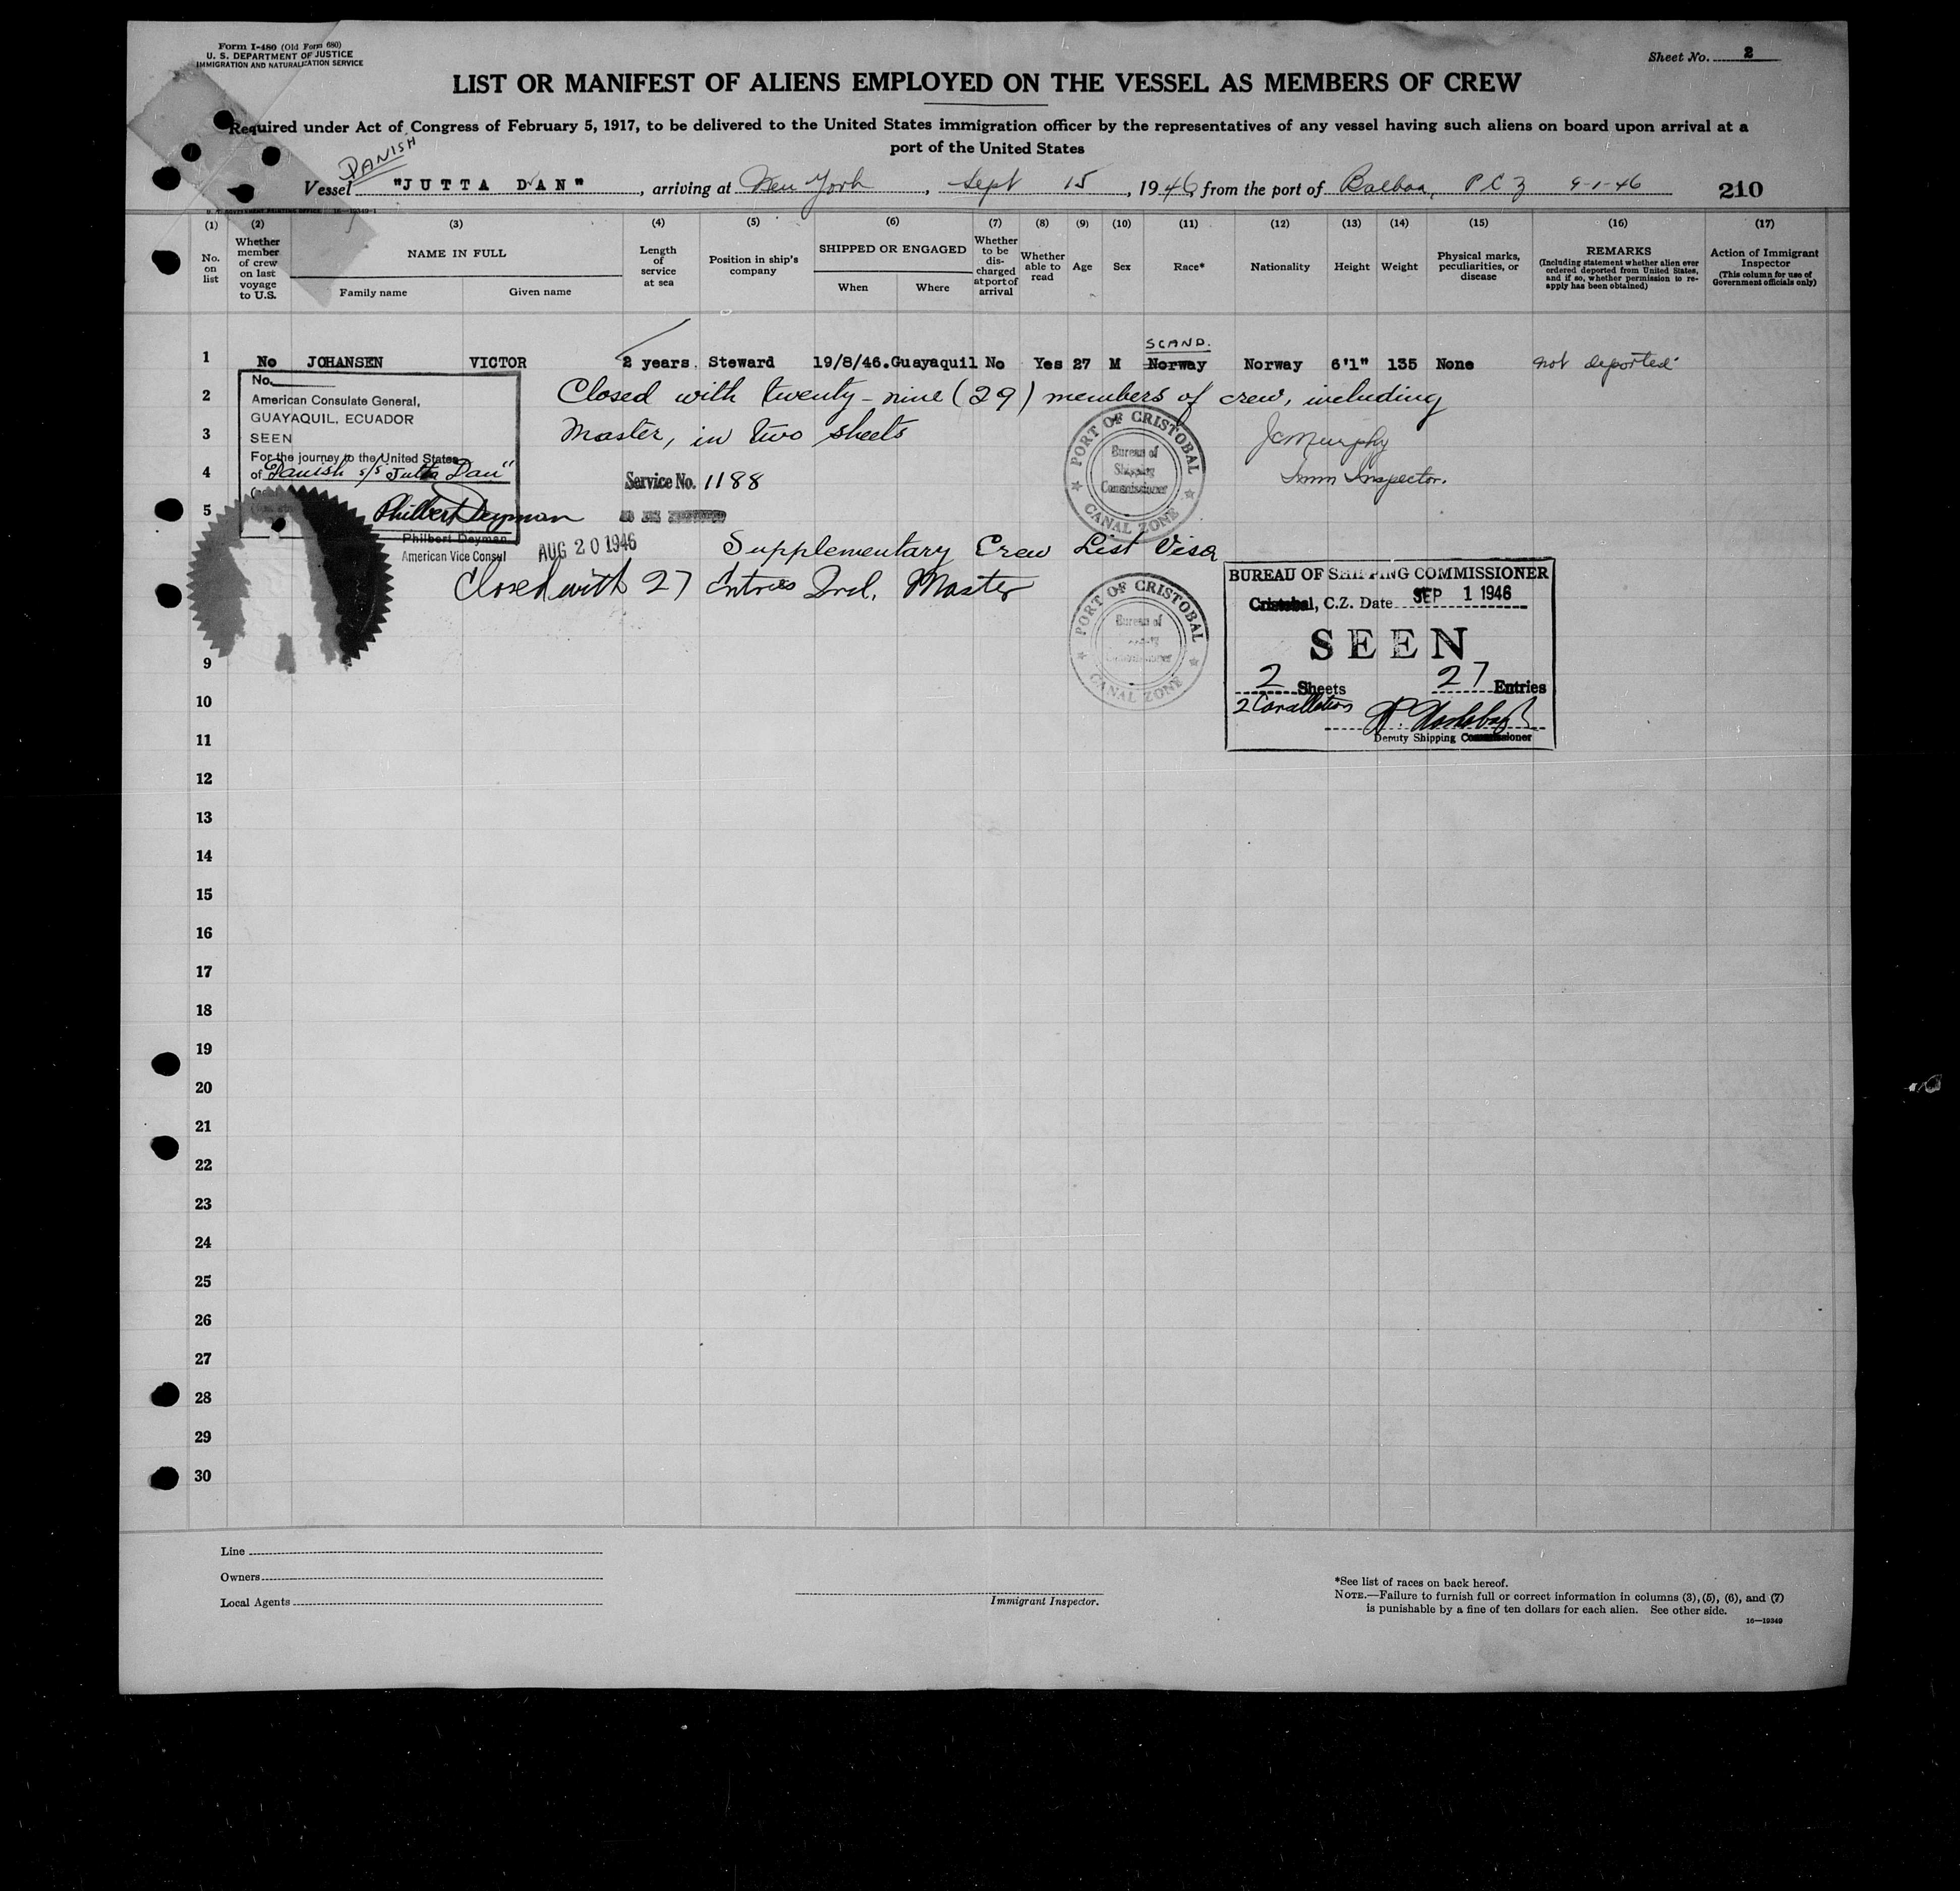 Form I-480 (Old Form 680)
U. S. DEPARTMENT OF JUSTICE
IMMIGRATION AND NATURALIZATION SERVICE
Sheet No. 2
LIST OR MANIFEST OF ALIENS EMPLOYED ON THE VESSEL AS MEMBERS OF CREW
Required under Act of Congress of February 5, 1917, to be delivered to the United States immigration officer by the representatives of any vessel having such aliens on board upon arrival at a
port of the United States
DANISH
Vessel "JUTTA DAN", arriving at New York, Sept 15, 1946, from the port of Balboa, P C Z 9-1-46 210
U. S. GOVERNMENT PRINTING OFFICE 16—19349-1
(1) (2) (3) (4) (5) (6) (7) (8) (9) (10) (11) (12) (13) (14) (15) (16) (17)
No. on list
Whether member of crew on last voyage to U.S.
NAME IN FULL
Family name
Given name
Length of service at sea
Position in ship's company
SHIPPED OR ENGAGED
When
Where
Whether to be discharged at port of arrival
Whether able to read
Age
Sex
Race*
Nationality
Height
Weight
Physical marks, peculiarities, or disease
REMARKS
(Including statement whether alien ever ordered deported from United States, and if so, whether permission to re-apply has been obtained)
Action of Immigrant Inspector
(This column for use of Government officials only)
SCAND.
1 No JOHANSEN VICTOR 2 years. Steward 19/8/46. Guayaquil No Yes 27 M Norway Norway 6'1" 135 None not deported
No.
2 Closed with twenty-nine (29) members of crew, including
American Consulate General,
GUAYAQUIL, ECUADOR
3 Master, in two sheets
SEEN
JC Murphy
For the journey to the United States
4 of Danish s/s "Jutta Dan"
Service No. 1188
Imm Inspector.
PORT OF CRISTOBAL
Bureau of
Shipping
Commissioner
CANAL ZONE
5 Philbert Deyman
Philbert Deyman
American Vice Consul
AUG 20 1946
Supplementary Crew List Visa
Closed with 27 Entries Incl. Master
PORT OF CRISTOBAL
Bureau of
CANAL ZONE
BUREAU OF SHIPPING COMMISSIONER
Cristobal, C.Z. Date SEP 1 1946
SEEN
2 Sheets 27 Entries
2
Deputy Shipping Commissioner
9
10
11
12
13
14
15
16
17
18
19
20
21
22
23
24
25
26
27
28
29
30
Line
Owners
Local Agents
Immigrant Inspector.
*See list of races on back hereof.
NOTE.—Failure to furnish full or correct information in columns (3), (5), (6), and (7)
is punishable by a fine of ten dollars for each alien. See other side.
16—19349